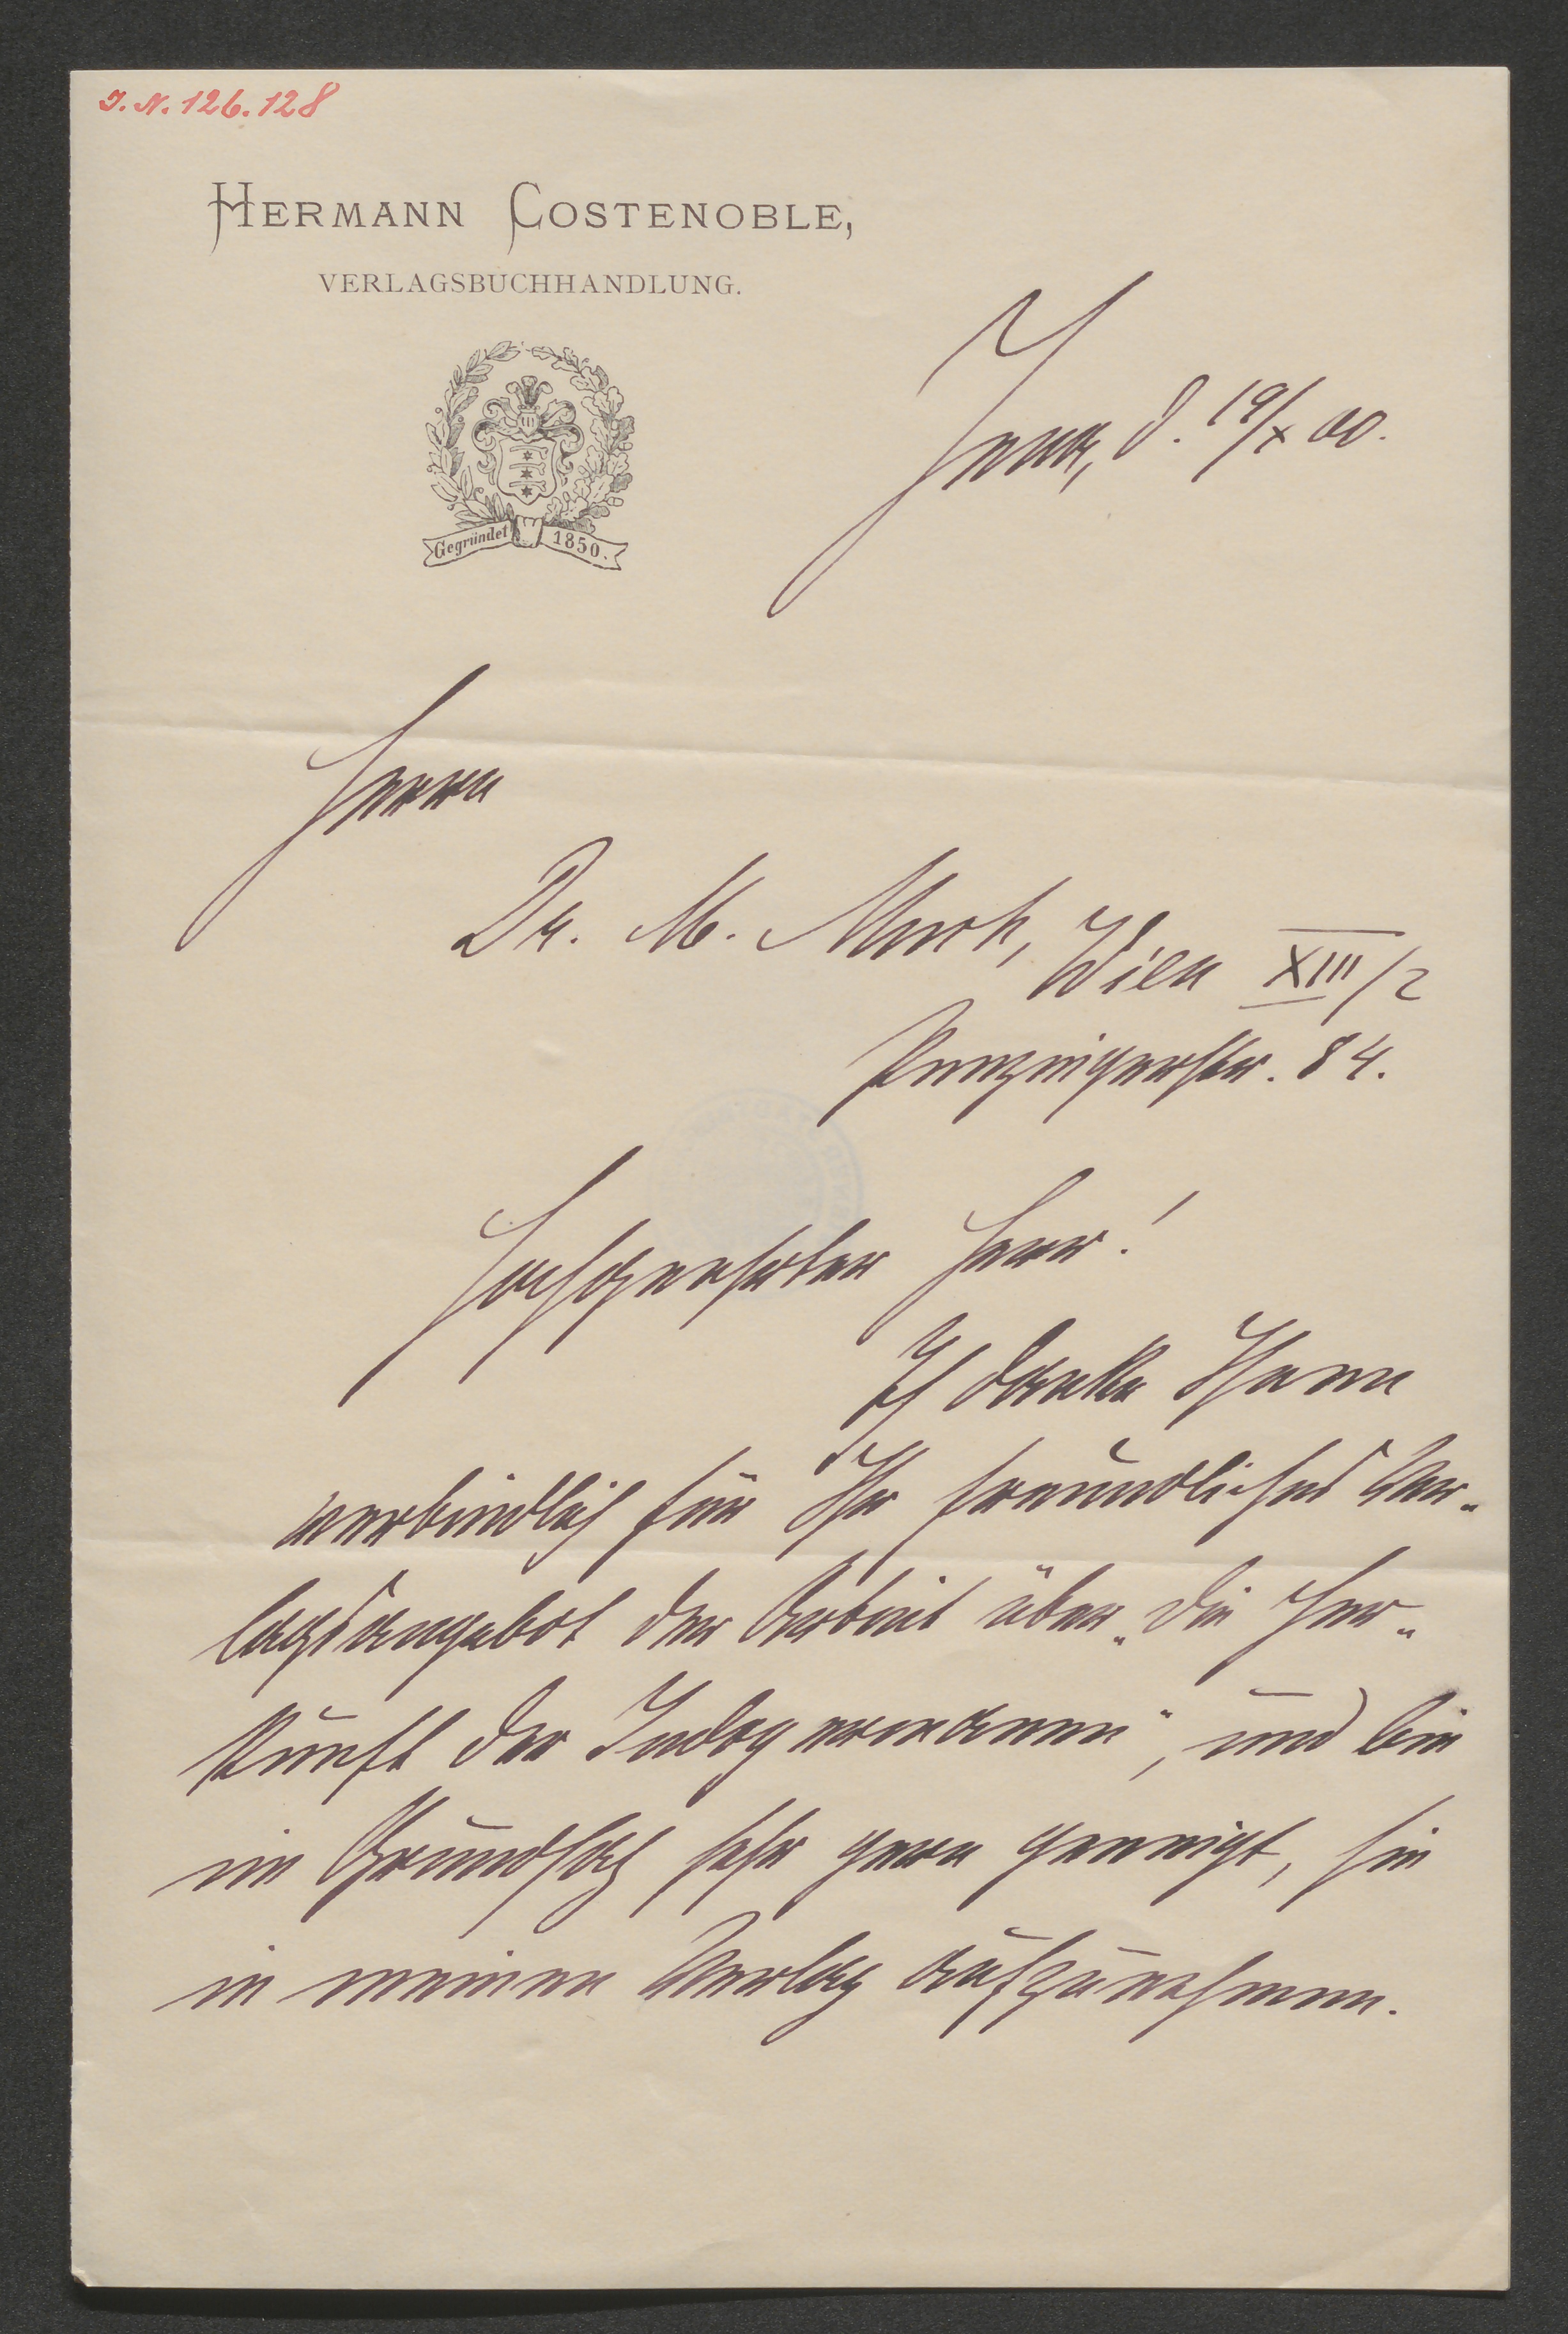 J. N. 126.128
HERMANN COSTENOBLE,
VERLAGSBUCHHANDLUNG.
Gegründet 1850.
Jena, d. 19/X 00.
Herrn
Dr. M. Much, Wien XIII/2
Penzingerstr. 84.
Hochgeehrter Herr!
Ich danke Ihnen
verbindlich für Ihr freundliches Ver-
lagsangebot der Arbeit über „Die Her-
kunft der Indogermanen", und bin
im Grundsatz sehr gern geneigt, sie
in meinen Verlag aufzunehmen.